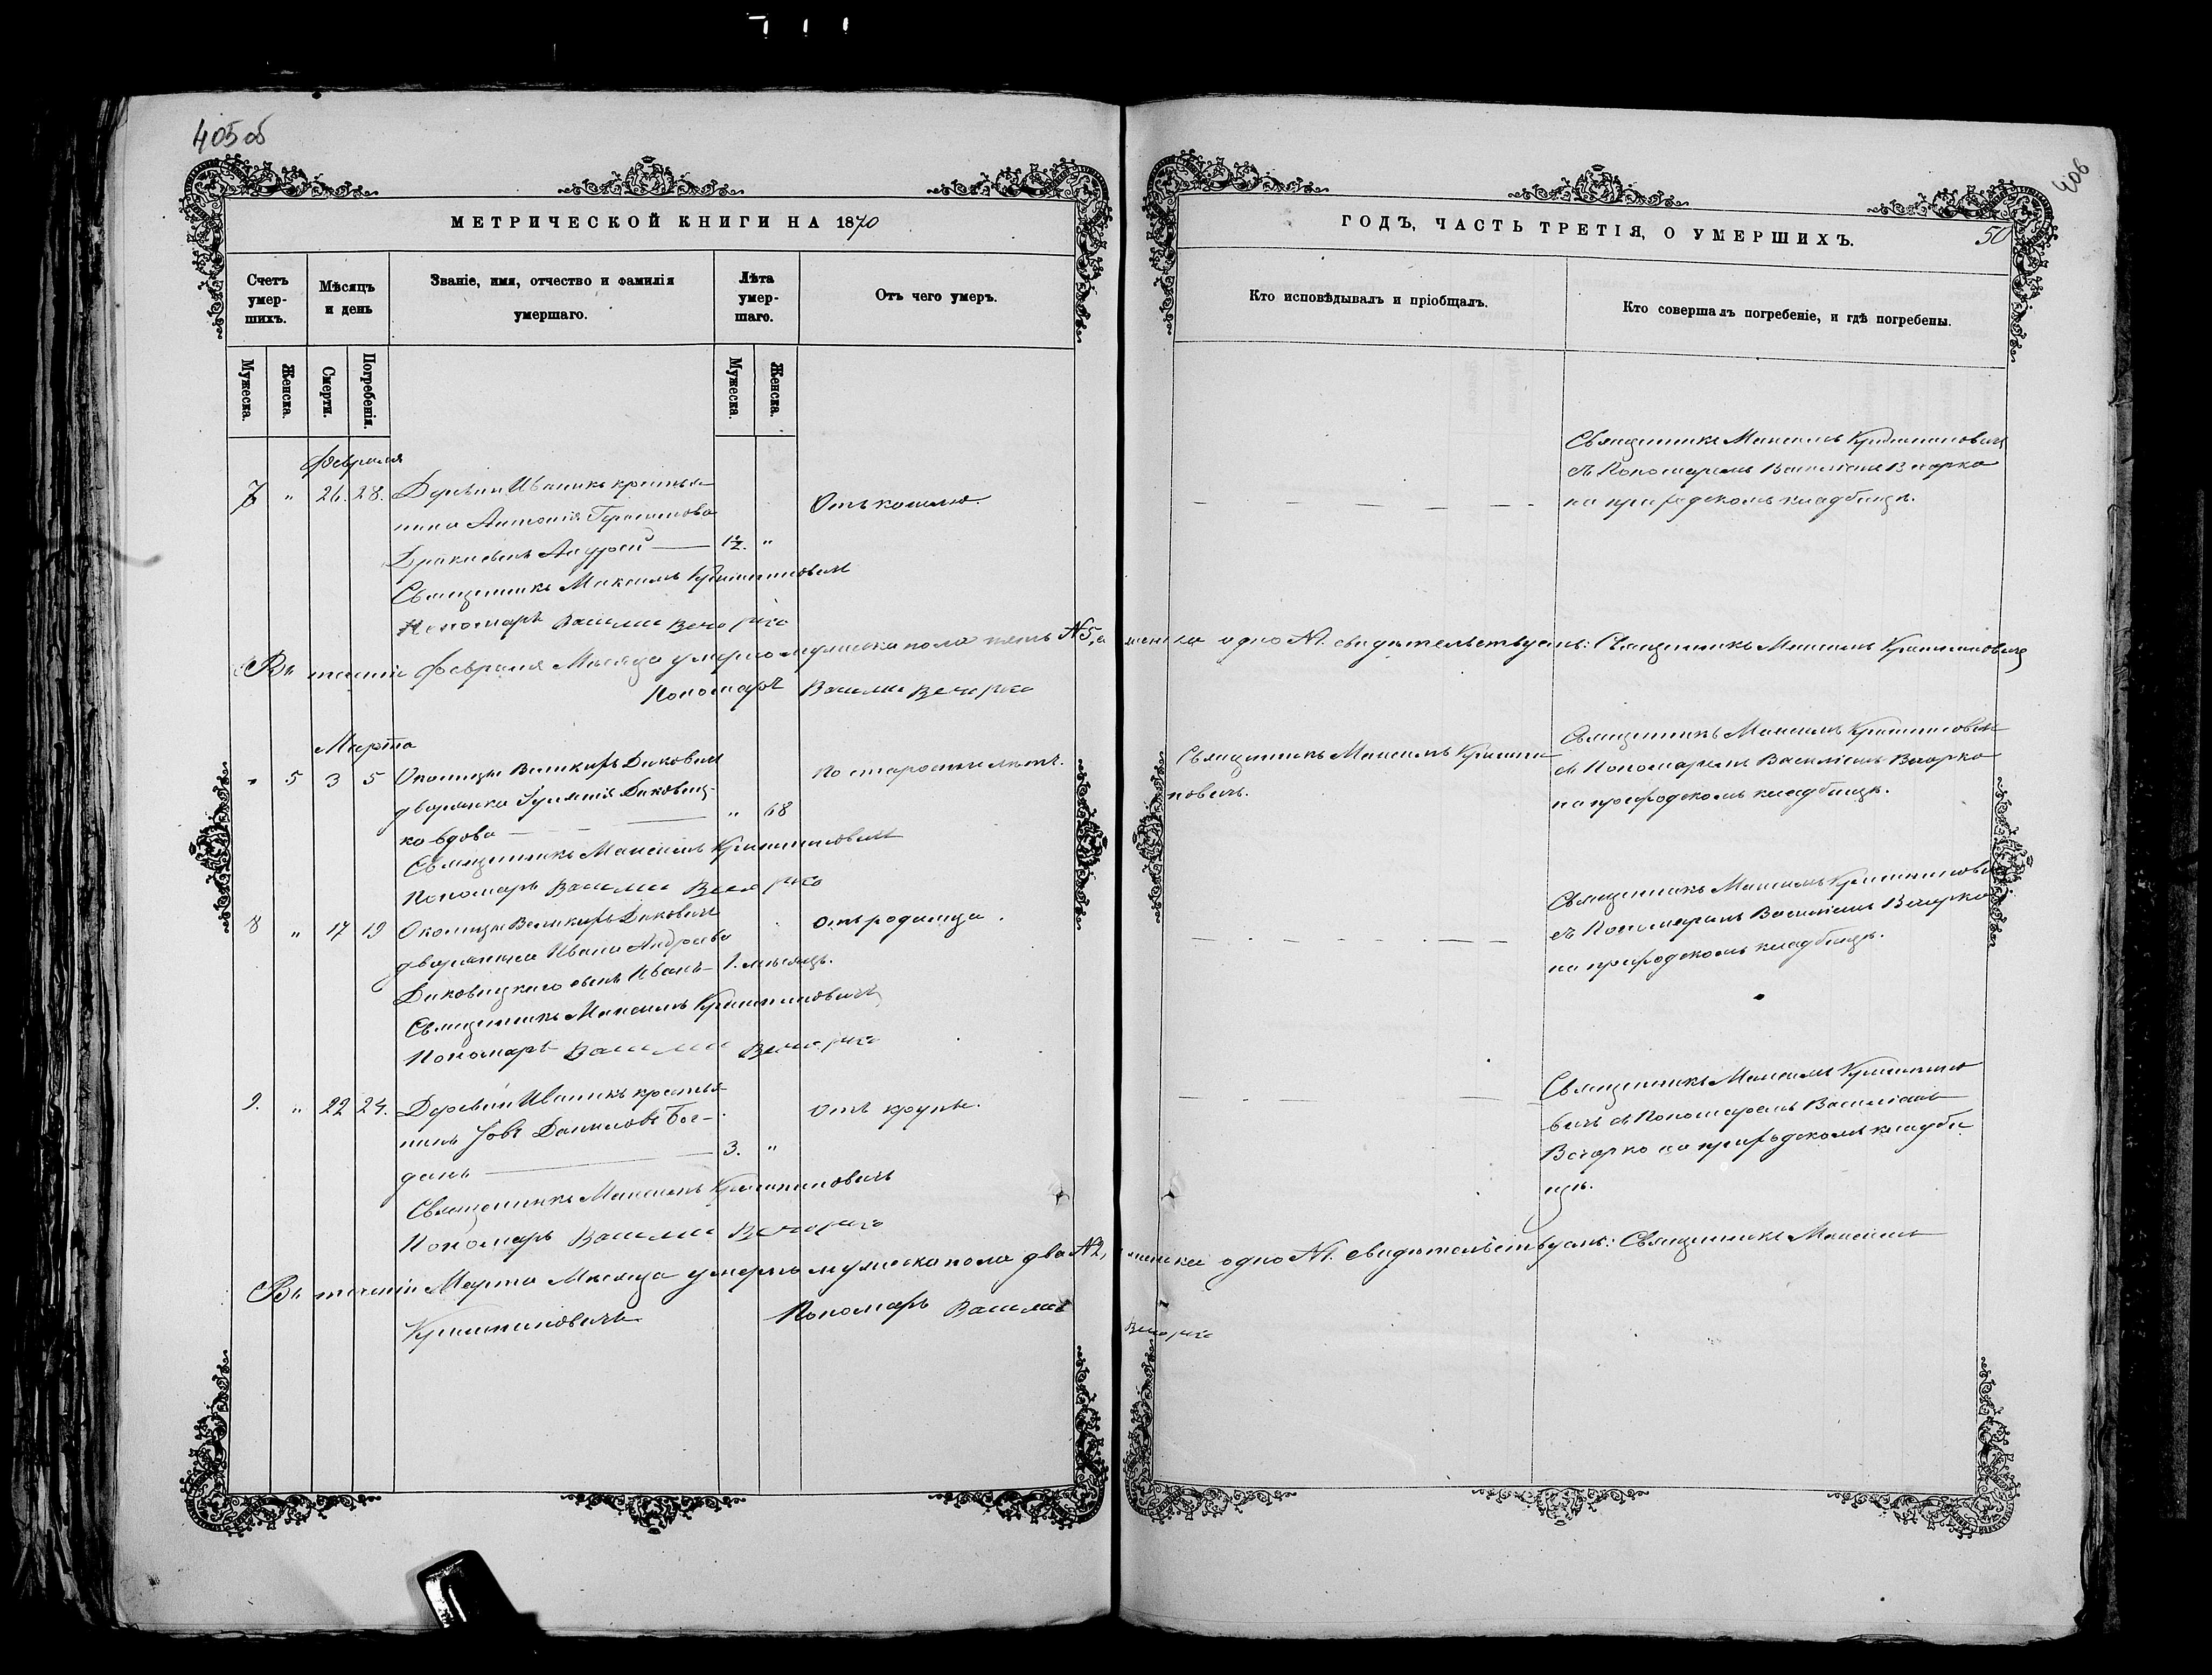 405 об
406
МЕТРИЧЕСКОЙ КНИГИ НА 1870
ГОДЪ, ЧАСТЬ ТРЕТІЯ, О УМЕРШИХЪ.
50
Счетъ умер-шихъ.
Мѣсяцъ и день
Званіе, имя, отчество и фамилія умершаго.
Лѣта умер-шаго.
Отъ чего умеръ.
Кто исповѣдывалъ и пріобщалъ.
Кто совершалъ погребеніе, и гдѣ погребены.
Мужеска.
Женска.
Смерти.
Погребенія.
Мужеска.
Женска.
Февраля
7 " 26. 28. Деревни Иваникъ крестья-
нина Антонія Герасимова
сынъ Андрей — 1½. "
Отъ кашлю.
Священникъ Максимъ
съ Пономаремъ Василіемъ Вечорко
на приходскомъ кладбищѣ.
Священникъ Максимъ
Пономарь Василий Вечорко
Въ теченіи Февраля Мѣсяца умерло мужеска пола пять №5, а женска одно №1. свидѣтельствуемъ: Священникъ Максимъ
Пономарь Василий Вечорко
Марта
" 5 3 5 Околицы Великихъ Диковичъ
дворянка Диковиц-
ка вдова — " 68
по старости лѣтъ.
Священникъ Максимъ
Священникъ Максимъ
съ Пономаремъ Василіемъ Вечорко
на приходскомъ кладбищѣ.
Священникъ Максимъ
Пономарь Василий Вечорко
8 " 17 19 Околицы Великихъ Диковичъ
дворянина Ивана Андреева
Диковицкаго сынъ Иванъ — 1. мѣсяцъ.
отъ родимца.
Священникъ Максимъ
съ Пономаремъ Василіемъ Вечорко
на приходскомъ кладбищѣ.
Священникъ Максимъ
Пономарь Василий Вечорко
9. " 22 24. Деревни Иваникъ крестья-
нинъ Іовъ Даниловъ Бог-
данъ — 3. "
отъ крупы.
Священникъ Максимъ
съ Пономаремъ Василіемъ
Вечорко на приходскомъ кладби
щѣ.
Священникъ Максимъ
Пономарь Василий Вечорко
Въ теченіи Марта Мѣсяца умерло мужеска пола два №2, женска одно №1. свидѣтельствуемъ: Священникъ Максимъ
Пономарь Василий Вечорко